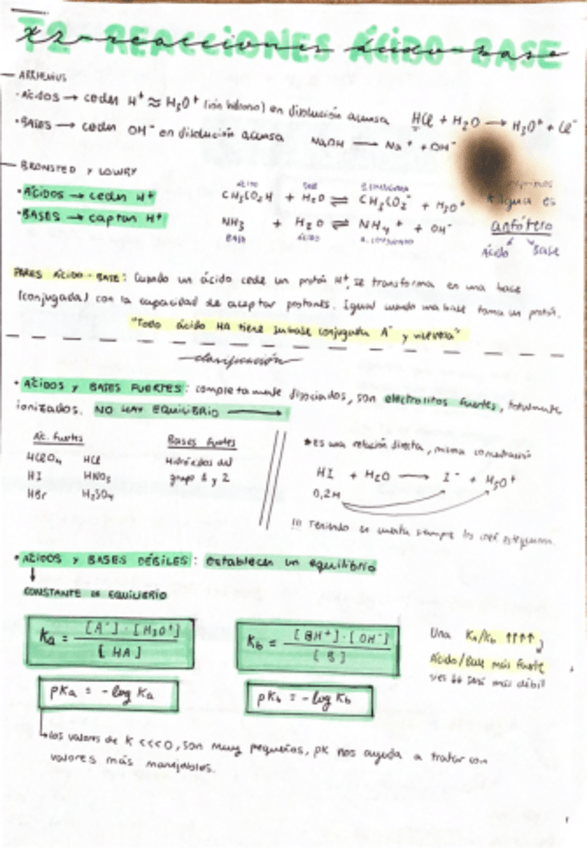 T2 - REACCIONES ÁCIDO-BASE
reacciones ácido-base
ARRHENIUS
·ÁCIDOS → ceden H⁺ ≈ H₃O⁺ (ión hidronio) en disolución acuosa HCl + H₂O → H₃O⁺ + Cl⁻
·BASES → ceden OH⁻ en disolución acuosa NaOH → Na⁺ + OH⁻
BRONSTED Y LOWRY
·ÁCIDOS → ceden H⁺
·BASES → captan H⁺
ÁCIDO BASE B. CONJUGADA
CH₃CO₂H + H₂O ⇌ CH₃CO₂⁻ + H₃O⁺
NH₃ + H₂O ⇌ NH₄⁺ + OH⁻
BASE ÁCIDO A. CONJUGADO
agua es
anfótero
ácido base
PARES ÁCIDO-BASE: Cuando un ácido cede un protón H⁺, se transforma en una base
(conjugada) con la capacidad de aceptar protones. Igual cuando una base toma un protón.
"Todo ácido HA tiene su base conjugada A⁻ y viceversa"
clasificación
·ÁCIDOS Y BASES FUERTES: completamente disociados, son electrolitos fuertes, totalmente
ionizados. NO HAY EQUILIBRIO →
Ác. fuertes Bases fuertes
HClO₄ HCl Hidróxidos del
HI HNO₃ grupo 1 y 2
HBr H₂SO₄
*es una relación directa, misma concentración
HI + H₂O → I⁻ + H₃O⁺
0,2M
!!! Teniendo en cuenta siempre los coef. estequiom.
·ÁCIDOS Y BASES DÉBILES: establecen un equilibrio
↓
CONSTANTE DE EQUILIBRIO
Ka = [A⁻]·[H₃O⁺] / [HA]
Kb = [BH⁺]·[OH⁻] / [B]
Una Ka/Kb ↑↑↑↑
Ácido/Base más fuerte
↓↓ será más débil
pKa = -log Ka
pKb = -log Kb
↳los valores de K <<<0, son muy pequeños, pK nos ayuda a tratar con
valores más manejables.